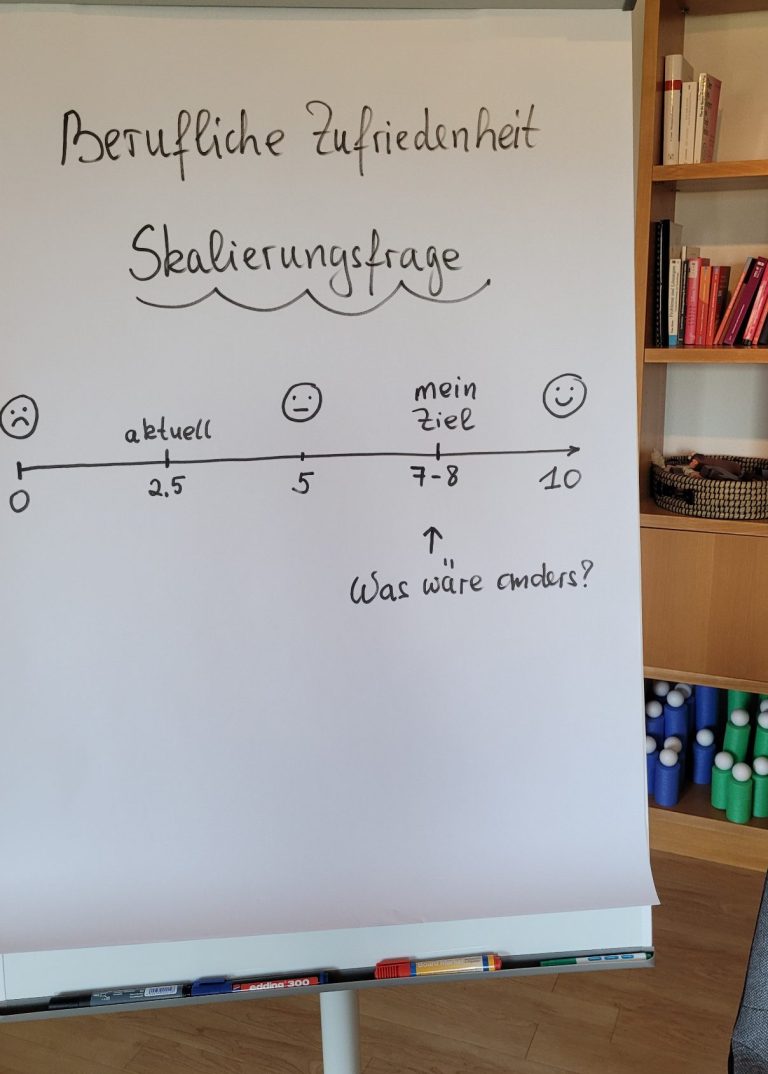 Berufliche Zufriedenheit
Skalierungsfrage
aktuell
mein
Ziel
0
2.5
5
7-8
10
↑
Was wäre anders?
edding 300